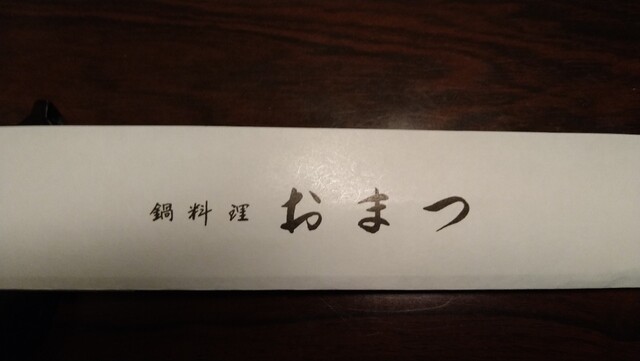 鍋料理 おまつ